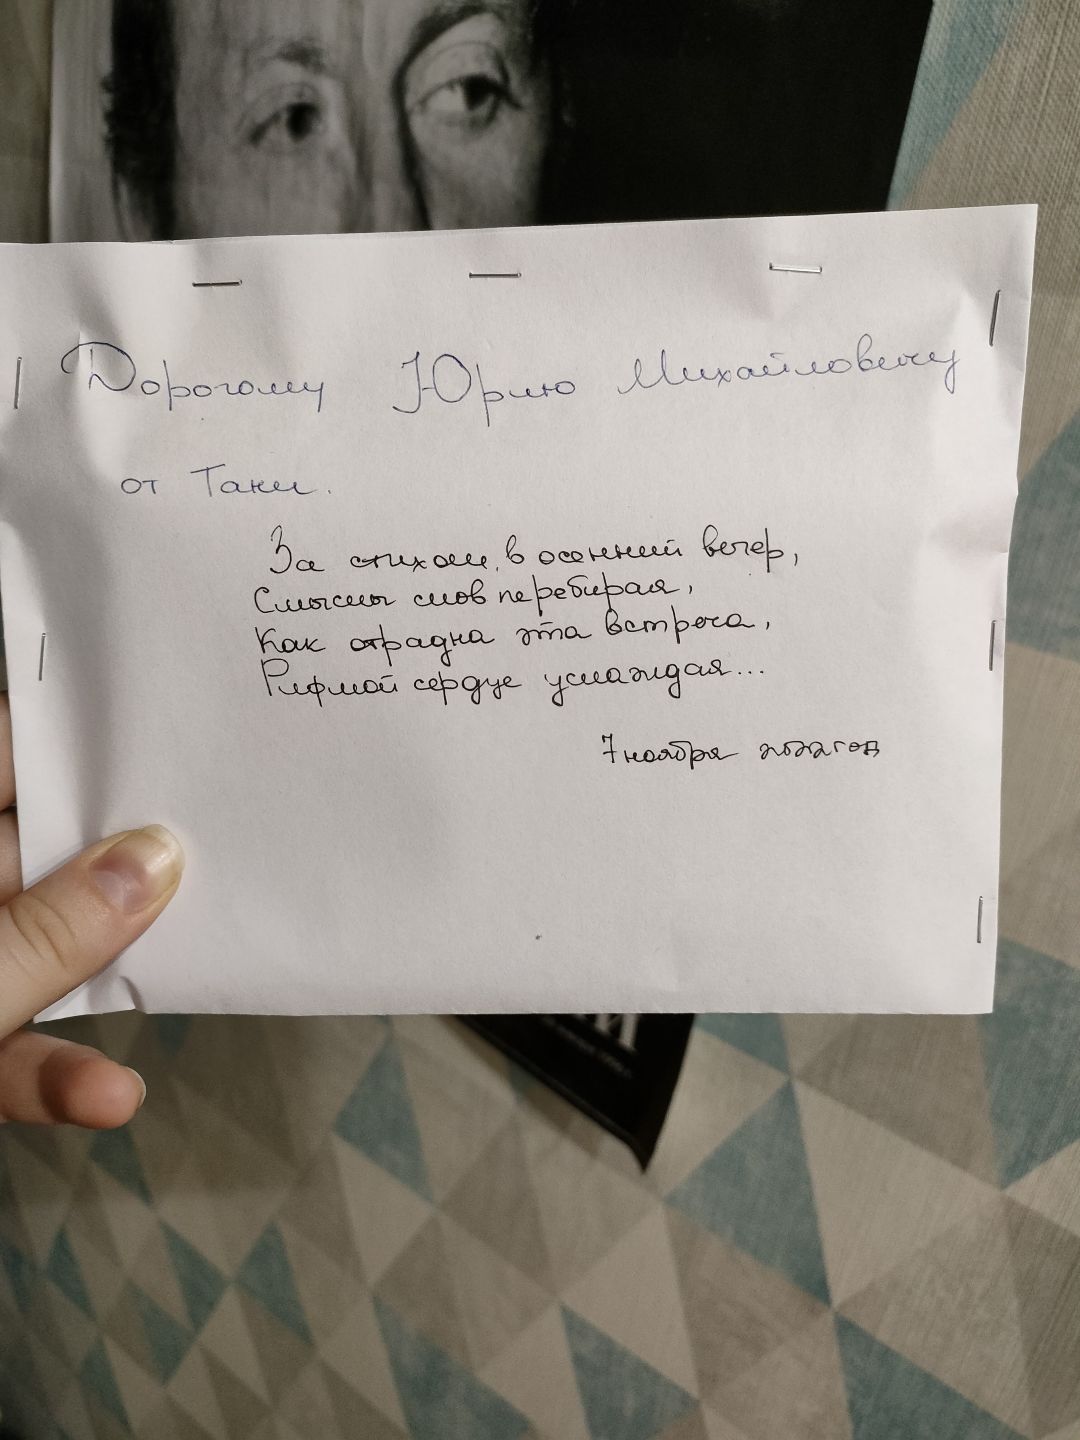 Дорогому Юрию Михайловичу
от Тани.
За стихами, в осенний вечер,
Смыслы слов перебирая,
Как отрадна эта встреча,
Рифмой сердце услаждая...
7 ноября 2022 год